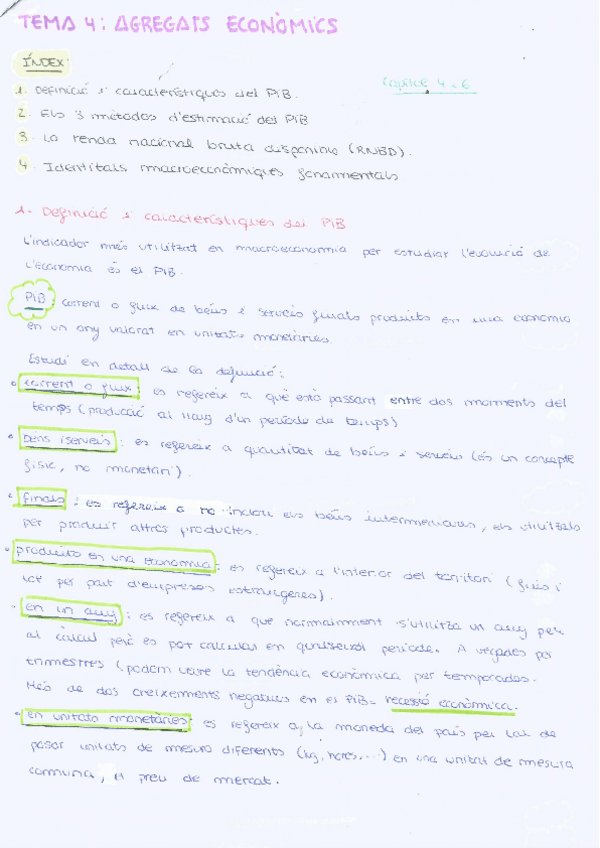 TEMA 4: AGREGATS ECONÒMICS
ÍNDEX:
1. Definició i característiques del PiB.
capítol 4 - 6
2. Els 3 mètodes d'estimació del PiB
3. La renda nacional bruta disponible (RNBD).
4. Identitats macroeconòmiques fonamentals
1. Definició i característiques del PiB
L'indicador més utilitzat en macroeconomia per estudiar l'evolució de
l'economia és el PiB.
PiB: corrent o fluix de béns i serveis finals produïts en una economia
en un any valorat en unitats monetàries.
Estudi en detall de la definició:
• corrent o fluix: es refereix a què està passant entre dos moments del
temps (producció al llarg d'un període de temps)
• béns i serveis: es refereix a quantitat de béns i serveis (és un concepte
físic, no monetari).
• finals: es refereix a no inclou els béns intermediaris, els utilitzats
per produir altres productes.
• produïts en una economia: es refereix a l'interior del territori (fins i
tot per part d'empreses estrangeres).
• en un any: es refereix a que normalment s'utilitza un any per
al càlcul però es pot calcular en qualsevol període. A vegades per
trimestres (podem veure la tendència econòmica per temporades.
Més de dos creixements negatius en el PiB= recessió econòmica.
• en unitats monetàries: es refereix a la moneda del país per tal de
passar unitats de mesura diferents (kg, hores...) en una unitat de mesura
comuna, el preu de mercat.